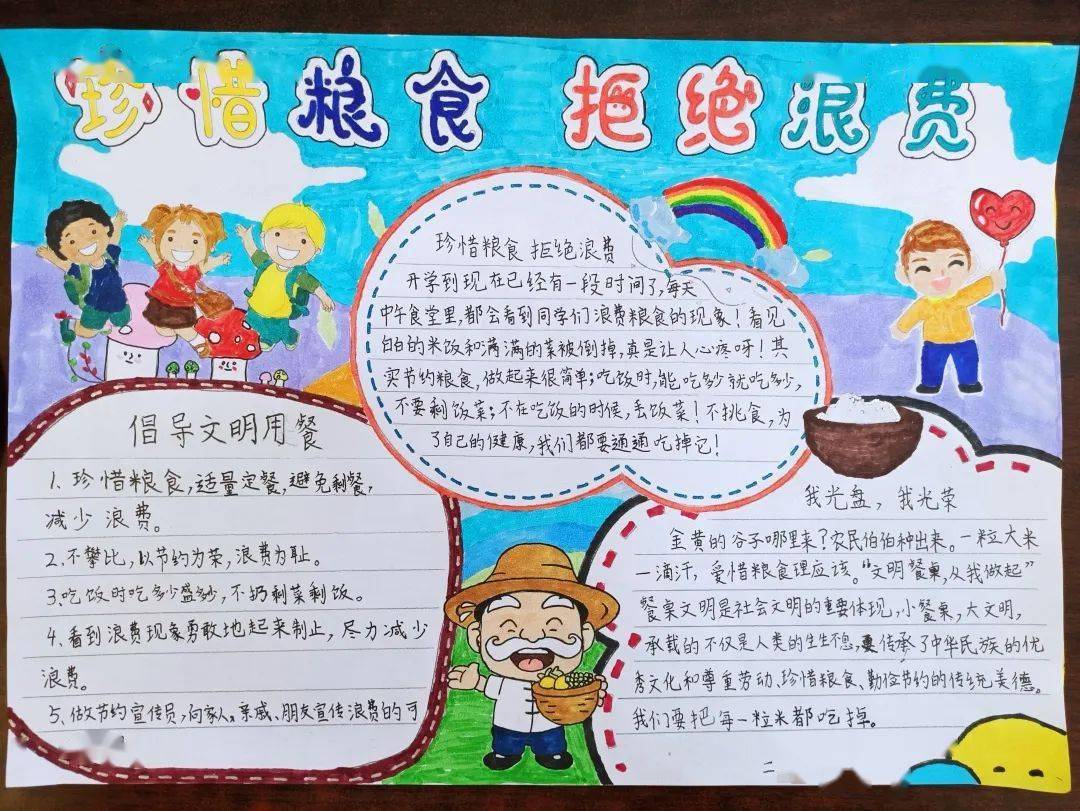 珍惜粮食 拒绝浪费
珍惜粮食 拒绝浪费
开学到现在已经有一段时间了,每天
中午食堂里,都会看到同学们浪费粮食的现象!看见
白白的米饭和满满的菜被倒掉,真是让人心疼呀!其
实节约粮食,做起来很简单;吃饭时,能吃多少就吃多少,
不要剩饭菜;不在吃饭的时候,丢饭菜!不挑食,为
了自己的健康,我们都要通通吃掉它!
倡导文明用餐
1、珍惜粮食,适量定餐,避免剩餐,
减少浪费。
2、不攀比,以节约为荣,浪费为耻。
3、吃饭时吃多少盛多少,不扔剩菜剩饭。
4、看到浪费现象勇敢地起来制止,尽力减少
浪费。
5、做节约宣传员,向家人、亲戚、朋友宣传浪费的可
我光盘,我光荣
金黄的谷子哪里来?农民伯伯种出来。一粒大米
一滴汗,爱惜粮食理应该。“文明餐桌,从我做起”
餐桌文明是社会文明的重要体现,小餐桌,大文明,
承载的不仅是人类的生生不息,更传承了中华民族的优
秀文化和尊重劳动、珍惜粮食、勤俭节约的传统美德。
我们要把每一粒米都吃掉。